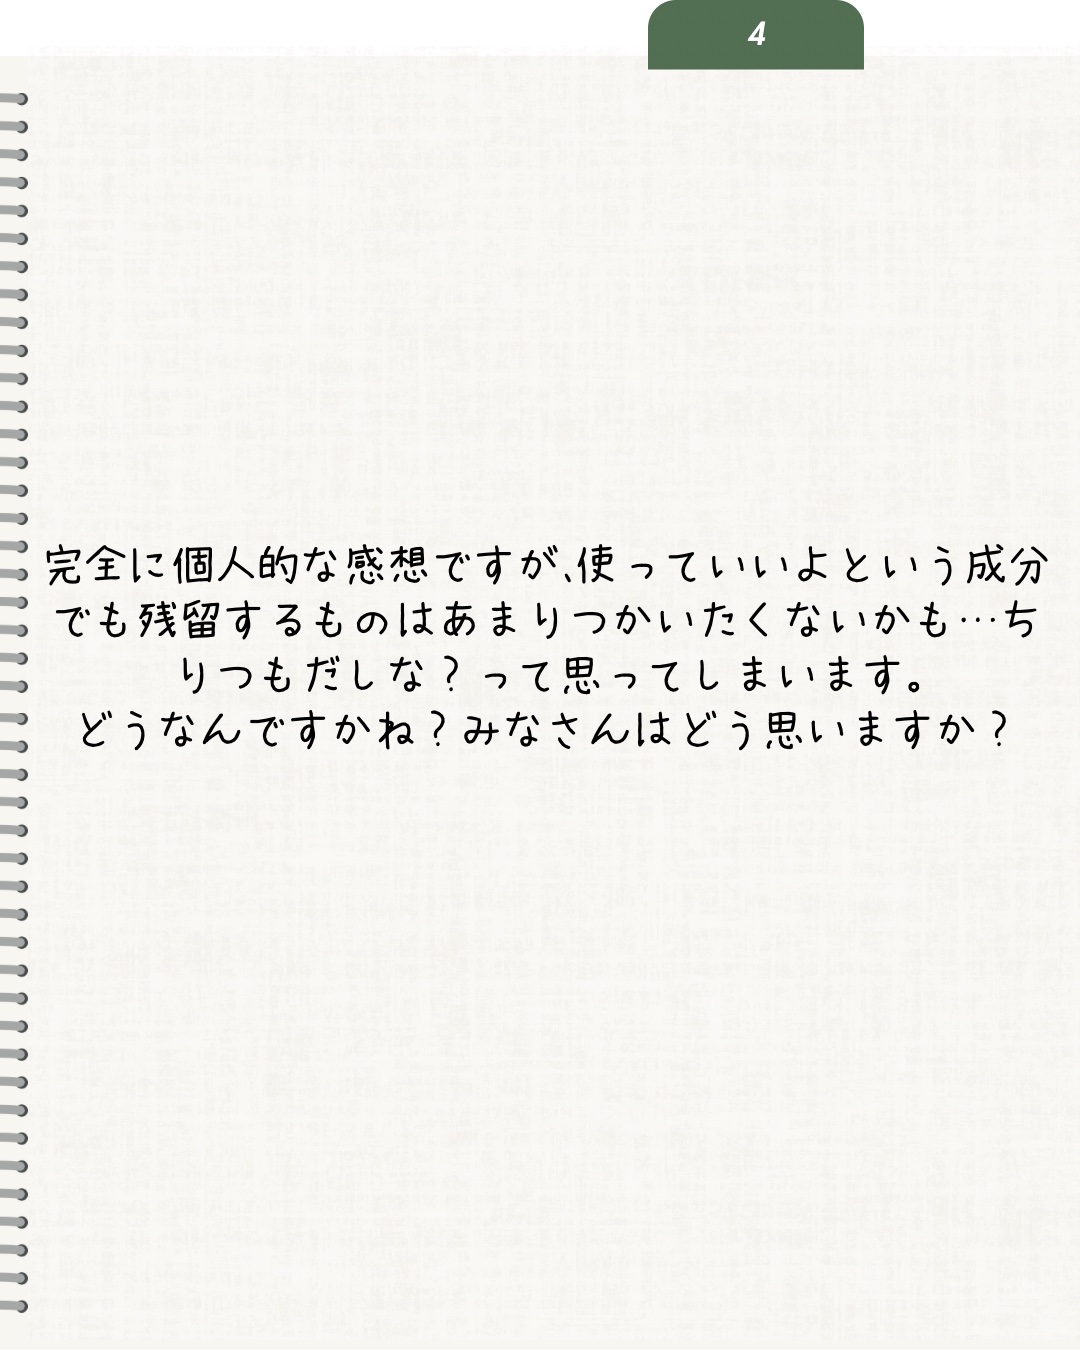 4
完全に個人的な感想ですが、使っていいよという成分
でも残留するものはあまりつかいたくないかも…ち
りつもだしな？って思ってしまいます。
どうなんですかね？みなさんはどう思いますか？